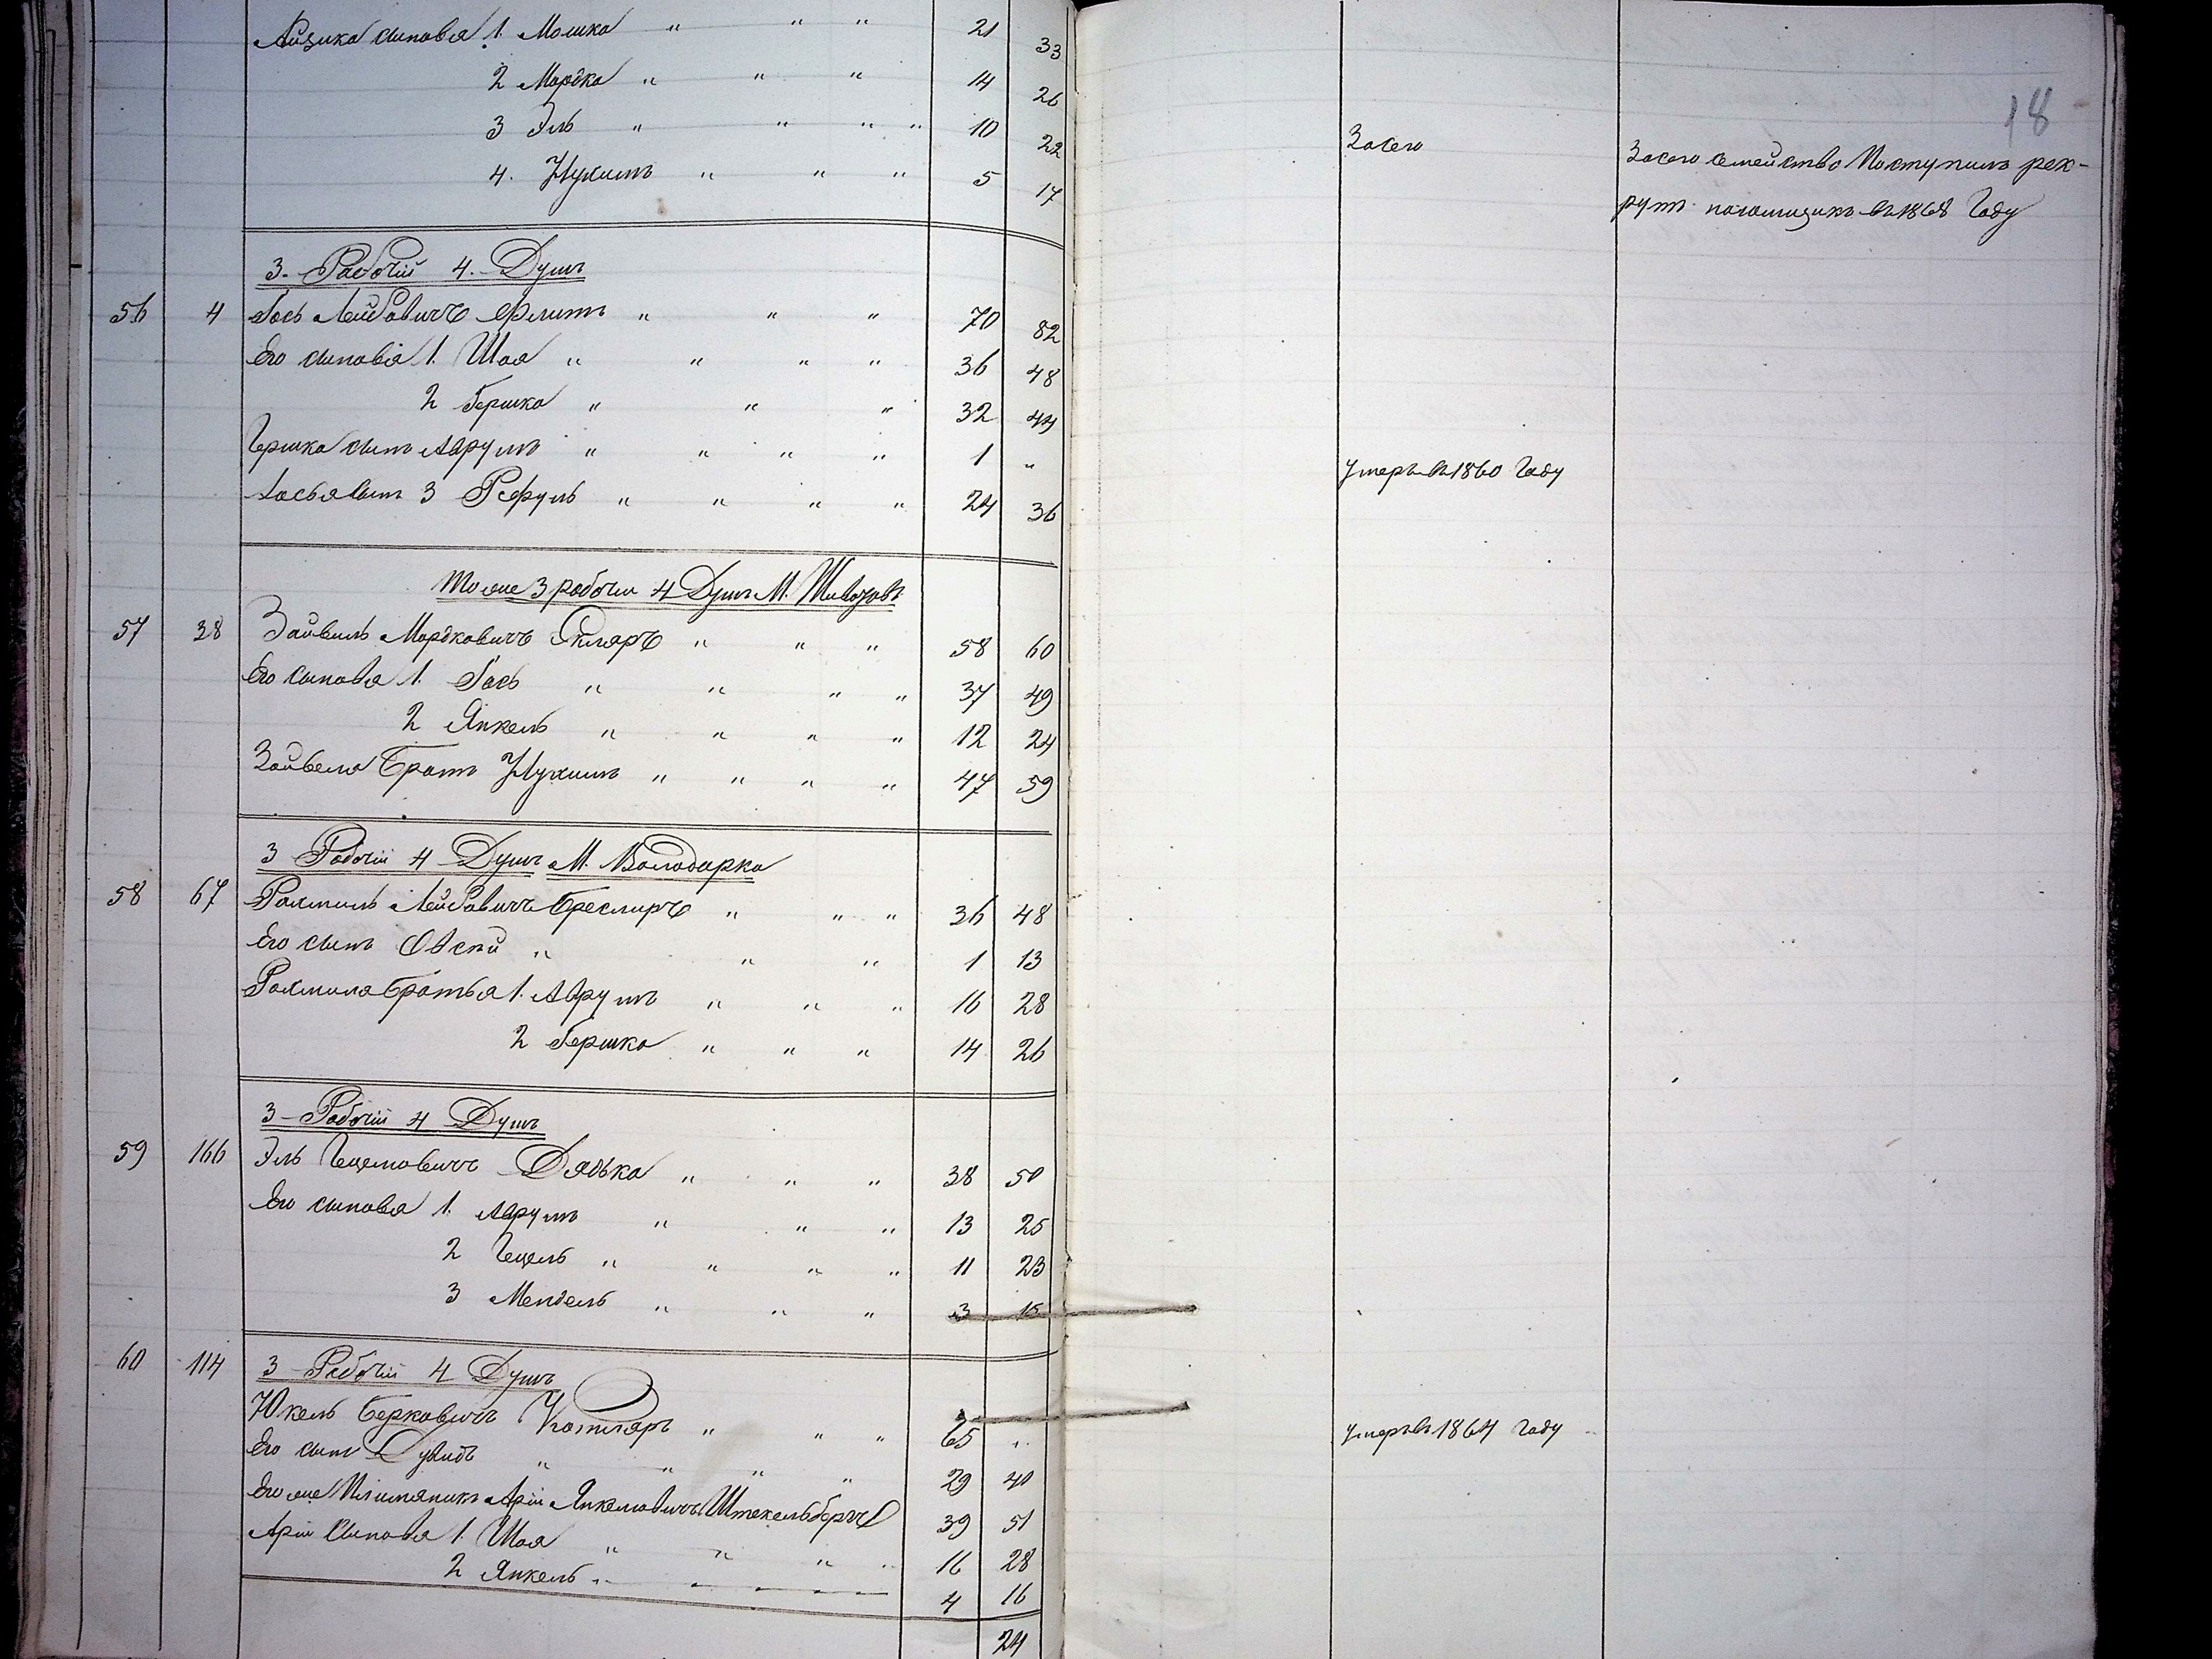 Айзика сыновья 1. Мошка " " " 21 33
2 Мордко " " " 14 26
3 Эль " " " " 10 22
4. Нухимъ " " " 5 17
18
За сего
За сего семейство Поступилъ рек-
рутъ въ 1868 Году
3. Рабочiй 4. Душъ
56 4 Гось Лейбовичъ " " " 70 82
Его сыновья 1. Шая " " " " 36 48
2 Гершко " " " 32 44
Гершка сынъ Аврумъ " " " " 1 " Умеръ въ 1860 Году
Госья сынъ 3 Рефуль " " " " 24 36
Тоже 3 рабочiй 4 Душъ М. Животовъ
57 38 Зайвель Мордковичъ Скляръ " " " 58 60
Его сыновья 1. Гось " " " " 37 49
2 Янкель " " " " 12 24
Зайвеля Братъ Нухимъ " " " " 47 59
3 Рабочiй 4 Душъ М. Володарка
58 67 Рахмиль Лейбовичъ Бреслиръ " " " 36 48
Его сынъ Овсiй " " " 1 13
Рахмиля братья 1. Аврумъ " " " 16 28
2 Гершко " " " 14 26
3 Рабочiй 4 Душъ
59 166 Эль Гецелевичъ Дядько " " " 38 50
Его сыновья 1. Аврумъ " " " 13 25
2 Гецель " " " " 11 23
3 Мендель " " " 3 15
60 114 3 Рабочiй 4 Душъ
Юкель Берковичъ Котляръ " " " 65 " Умеръ въ 1864 Году
Его сынъ Дувидъ " " " " 29 40
Его же Племянникъ Арiй Янкелевичъ Штекельбергъ 39 51
Арiй Сыновья 1. Шая " " " " 16 28
2 Янкель " 4 16
24